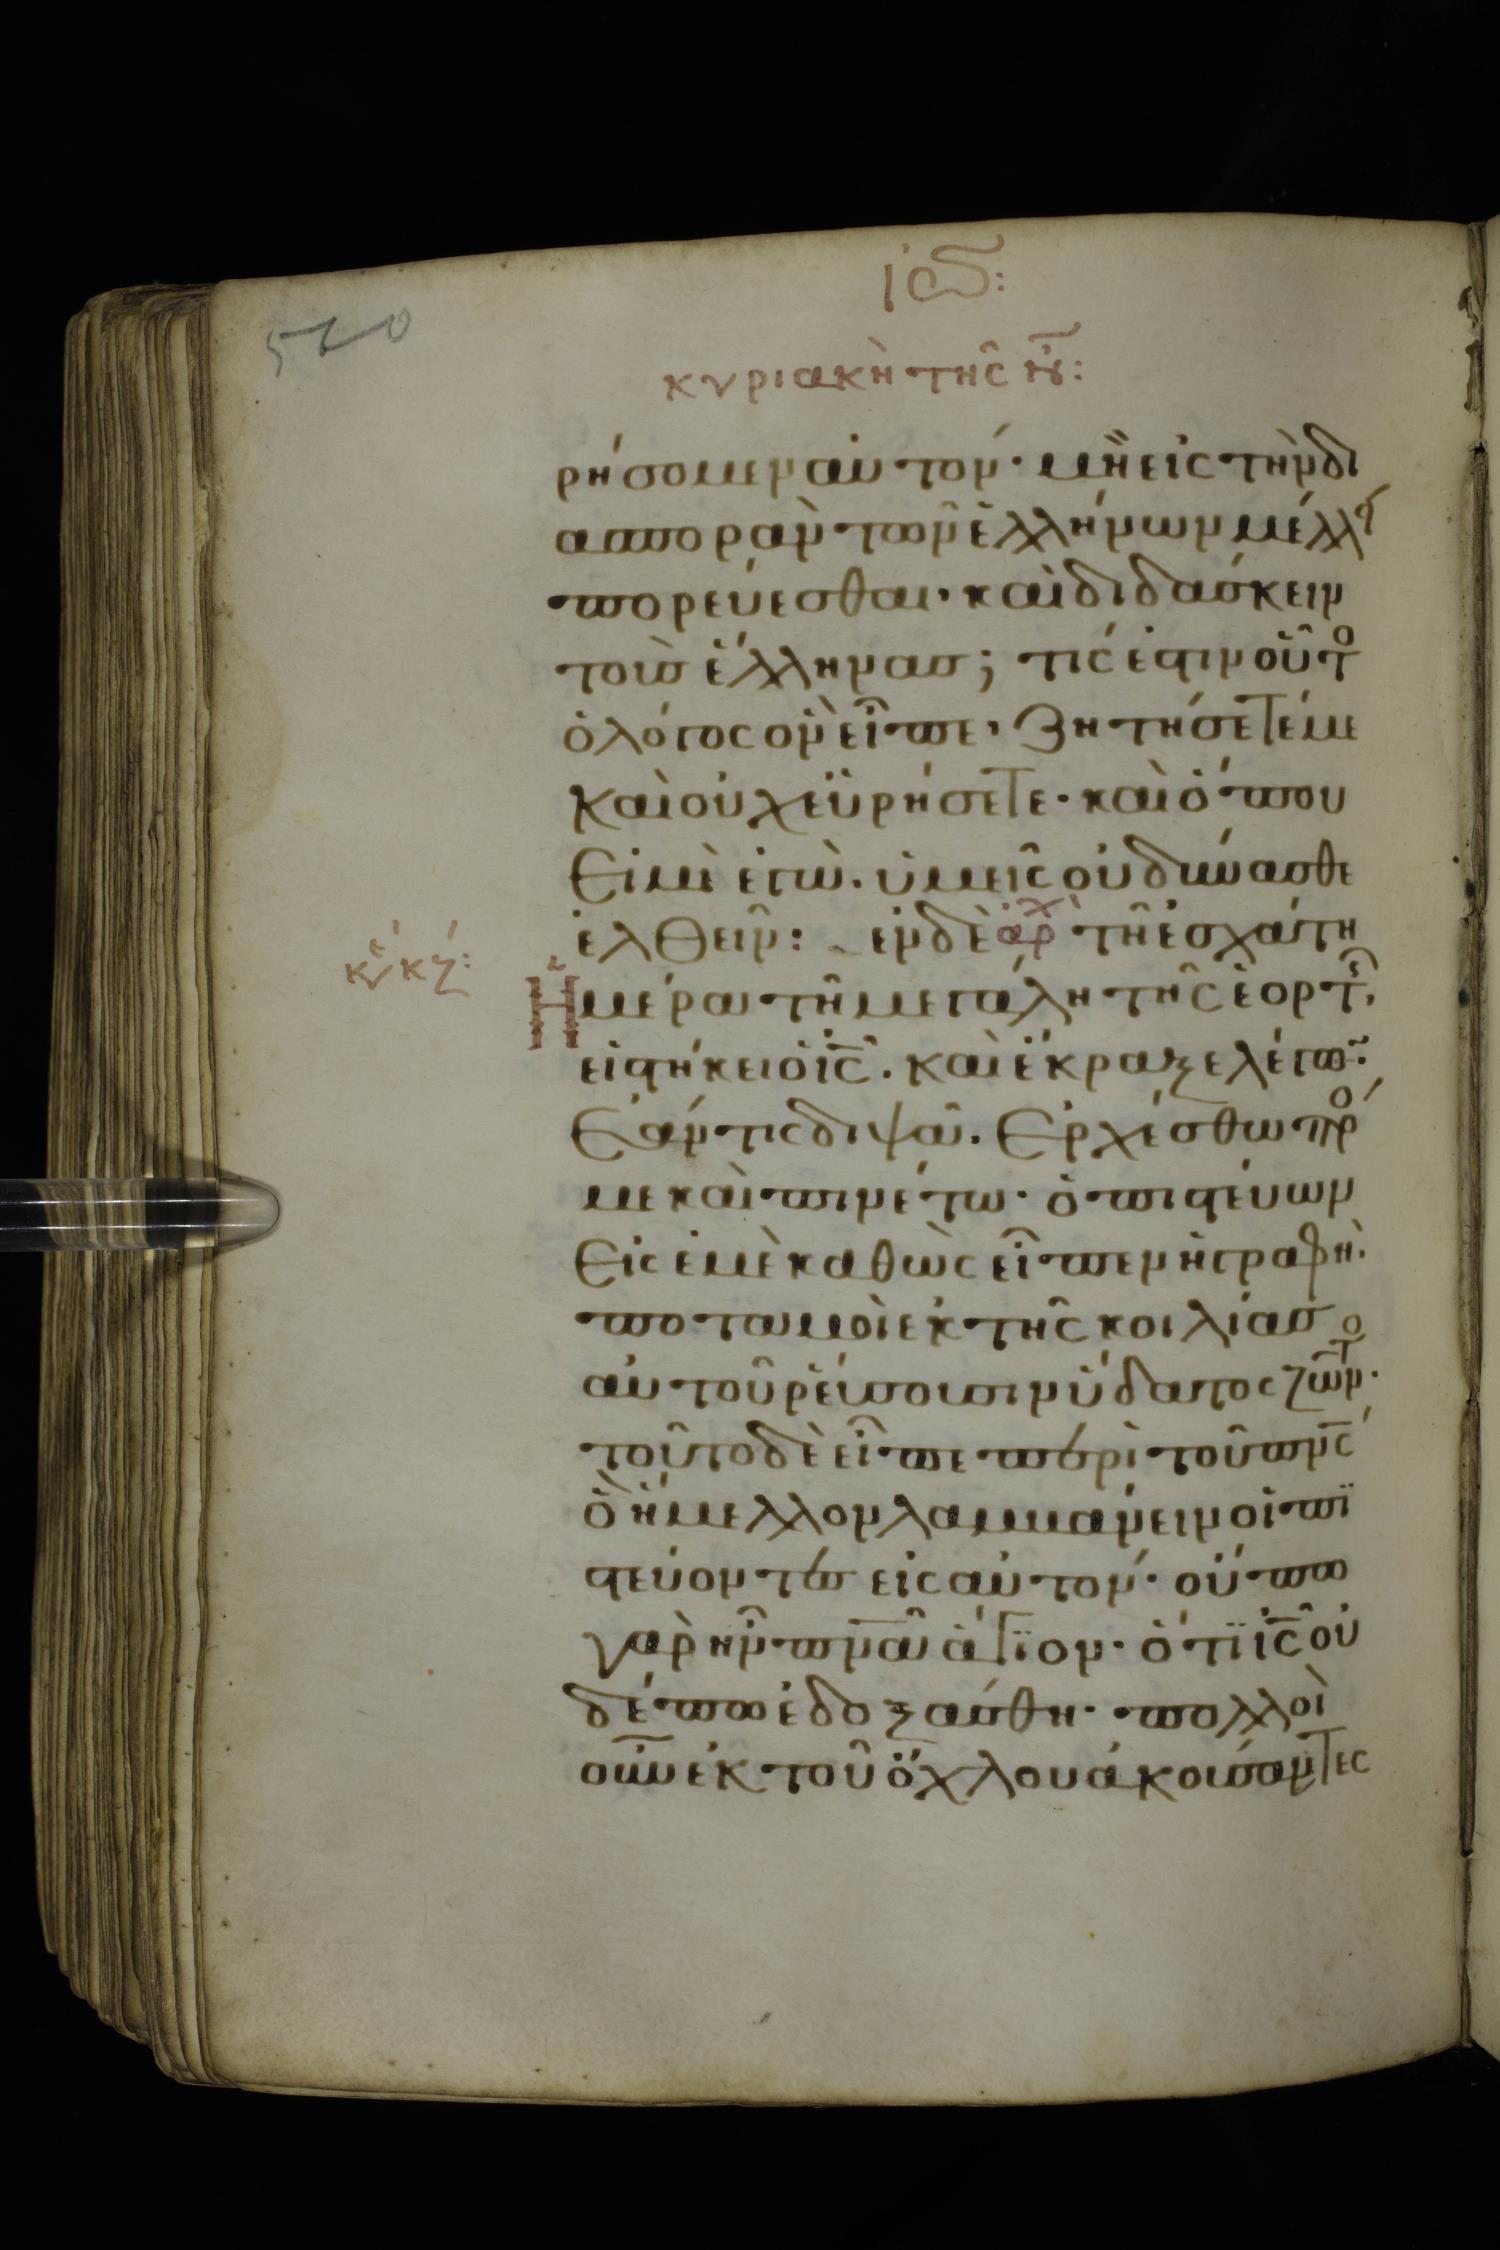 ιω:
520
κυριακὴ τῆς ν̅:
ρήσομεν αὐτόν· μὴ εἰς τὴν δι
ασποραν τῶν ἑλλήνων μέλλ
πορεύεσθαι· καὶ διδάσκειν
τοὺσ ἕλληνασ; τίς ἐστιν οὗτο
ὁ λόγος ὃν εἶπε· ζητήσετέ με
καὶ οὐχ εὑρήσετε· καὶ ὅπου
εἰμὲ ἐγὼ· ὑμεῖς οὐ δύνασθε
ἐλθεῖν: ἐν δὲ ἀρχ τῆ ἐσχάτη
κε κζ:
ἡμέρα τῆ μεγάλη τῆς ἑορτῆ,
εἱστήκει ὁ ις̅· καὶ ἔκραξε λέγω:
Ἐάν τις διψᾶ· Ἐρχέσθω πρό
με καὶ πινέτω· ὁ πιστεύων
Εἰς ἐμὲ καθὼς εἶπεν ἡ γραφὴ·
ποταμοὶ ἐκ τῆς κοιλίασ
αὐτοῦ ῥεύσουσιν ὕδατος ζῶντο·
τοῦτο δὲ εἶπε περὶ τοῦ πνς̅
ὃ ἤμελλον λαμμάνειν οἱ πϊ
στεύοντεσ εἰς αὐτόν· οὔπω
γὰρ ἦν πνα̅ ἅγϊον· ὅτϊ ις̅ οὐ
δέπω ἐδοξάσθη· πολλοὶ
οὖν ἐκ τοῦ ὄχλου ἀκούσαντες